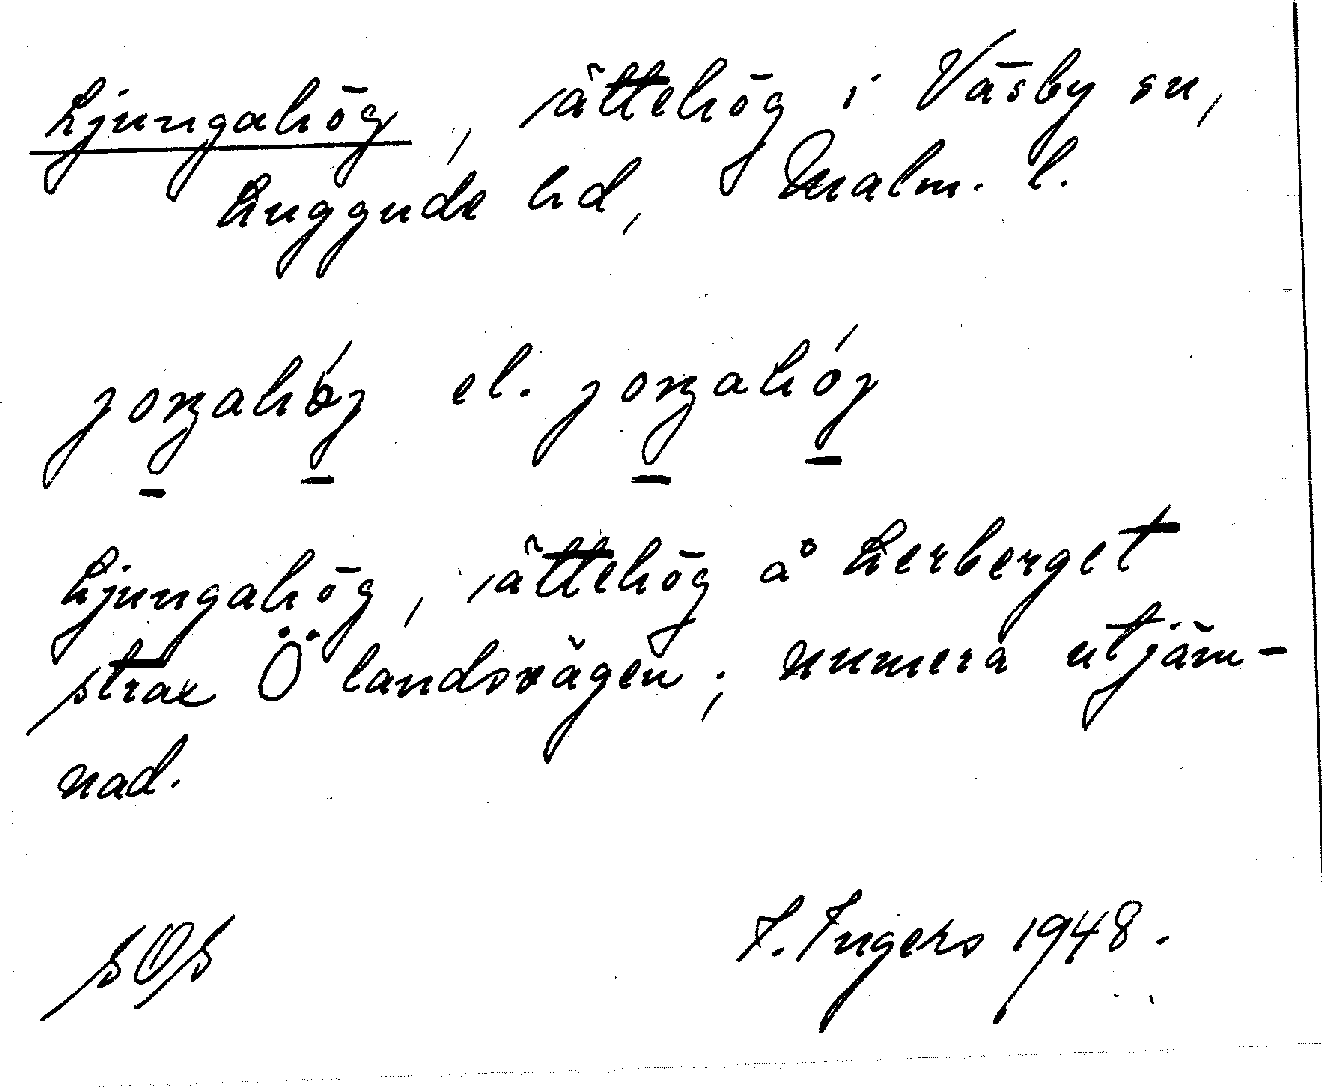 Ljungahög, ättehög i Väsby sn,
Luggude hd, Malm. l.
el.
Ljungahög, ättehög å Lerberget
strax Ö landsvägen; numera utjäm-
nad.
SOS I. Ingers 1948.